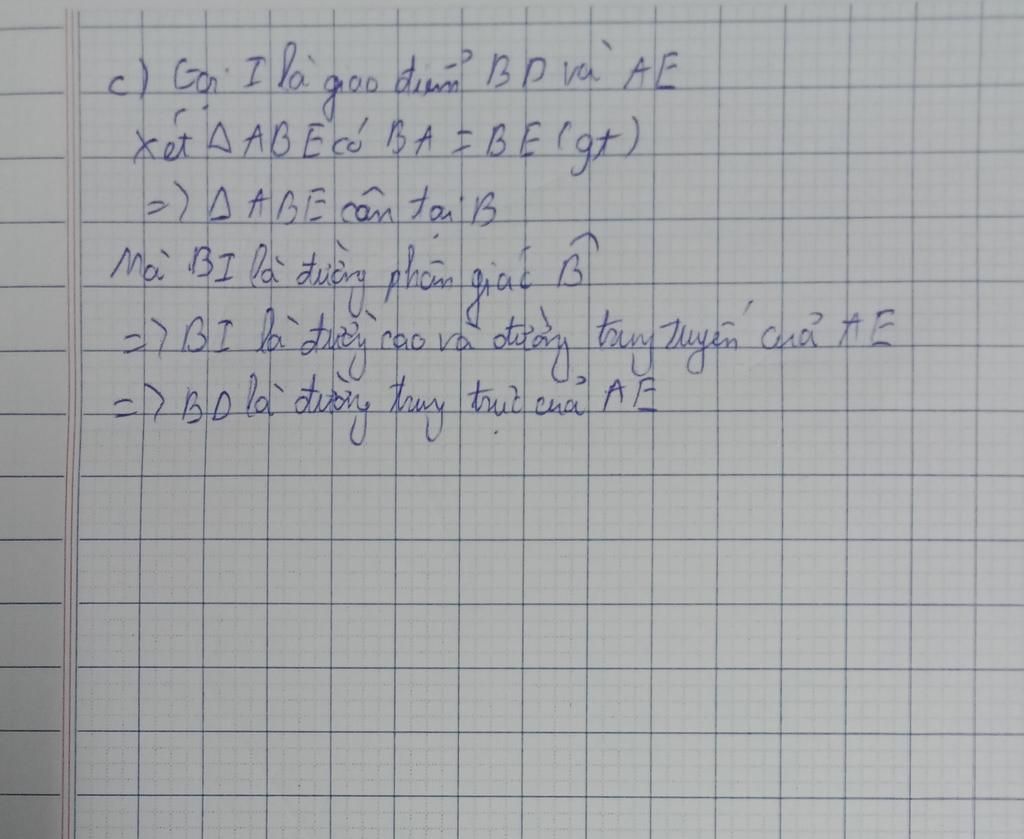 c) Gọi I là giao điểm BD và AE
Xét Δ ABE có BA = BE (gt)
=> Δ ABE cân tại B
Mà BI là đường phân giác B̂
=> BI là đường cao và đường trung tuyến của AE
=> BD là đường trung trực của AE